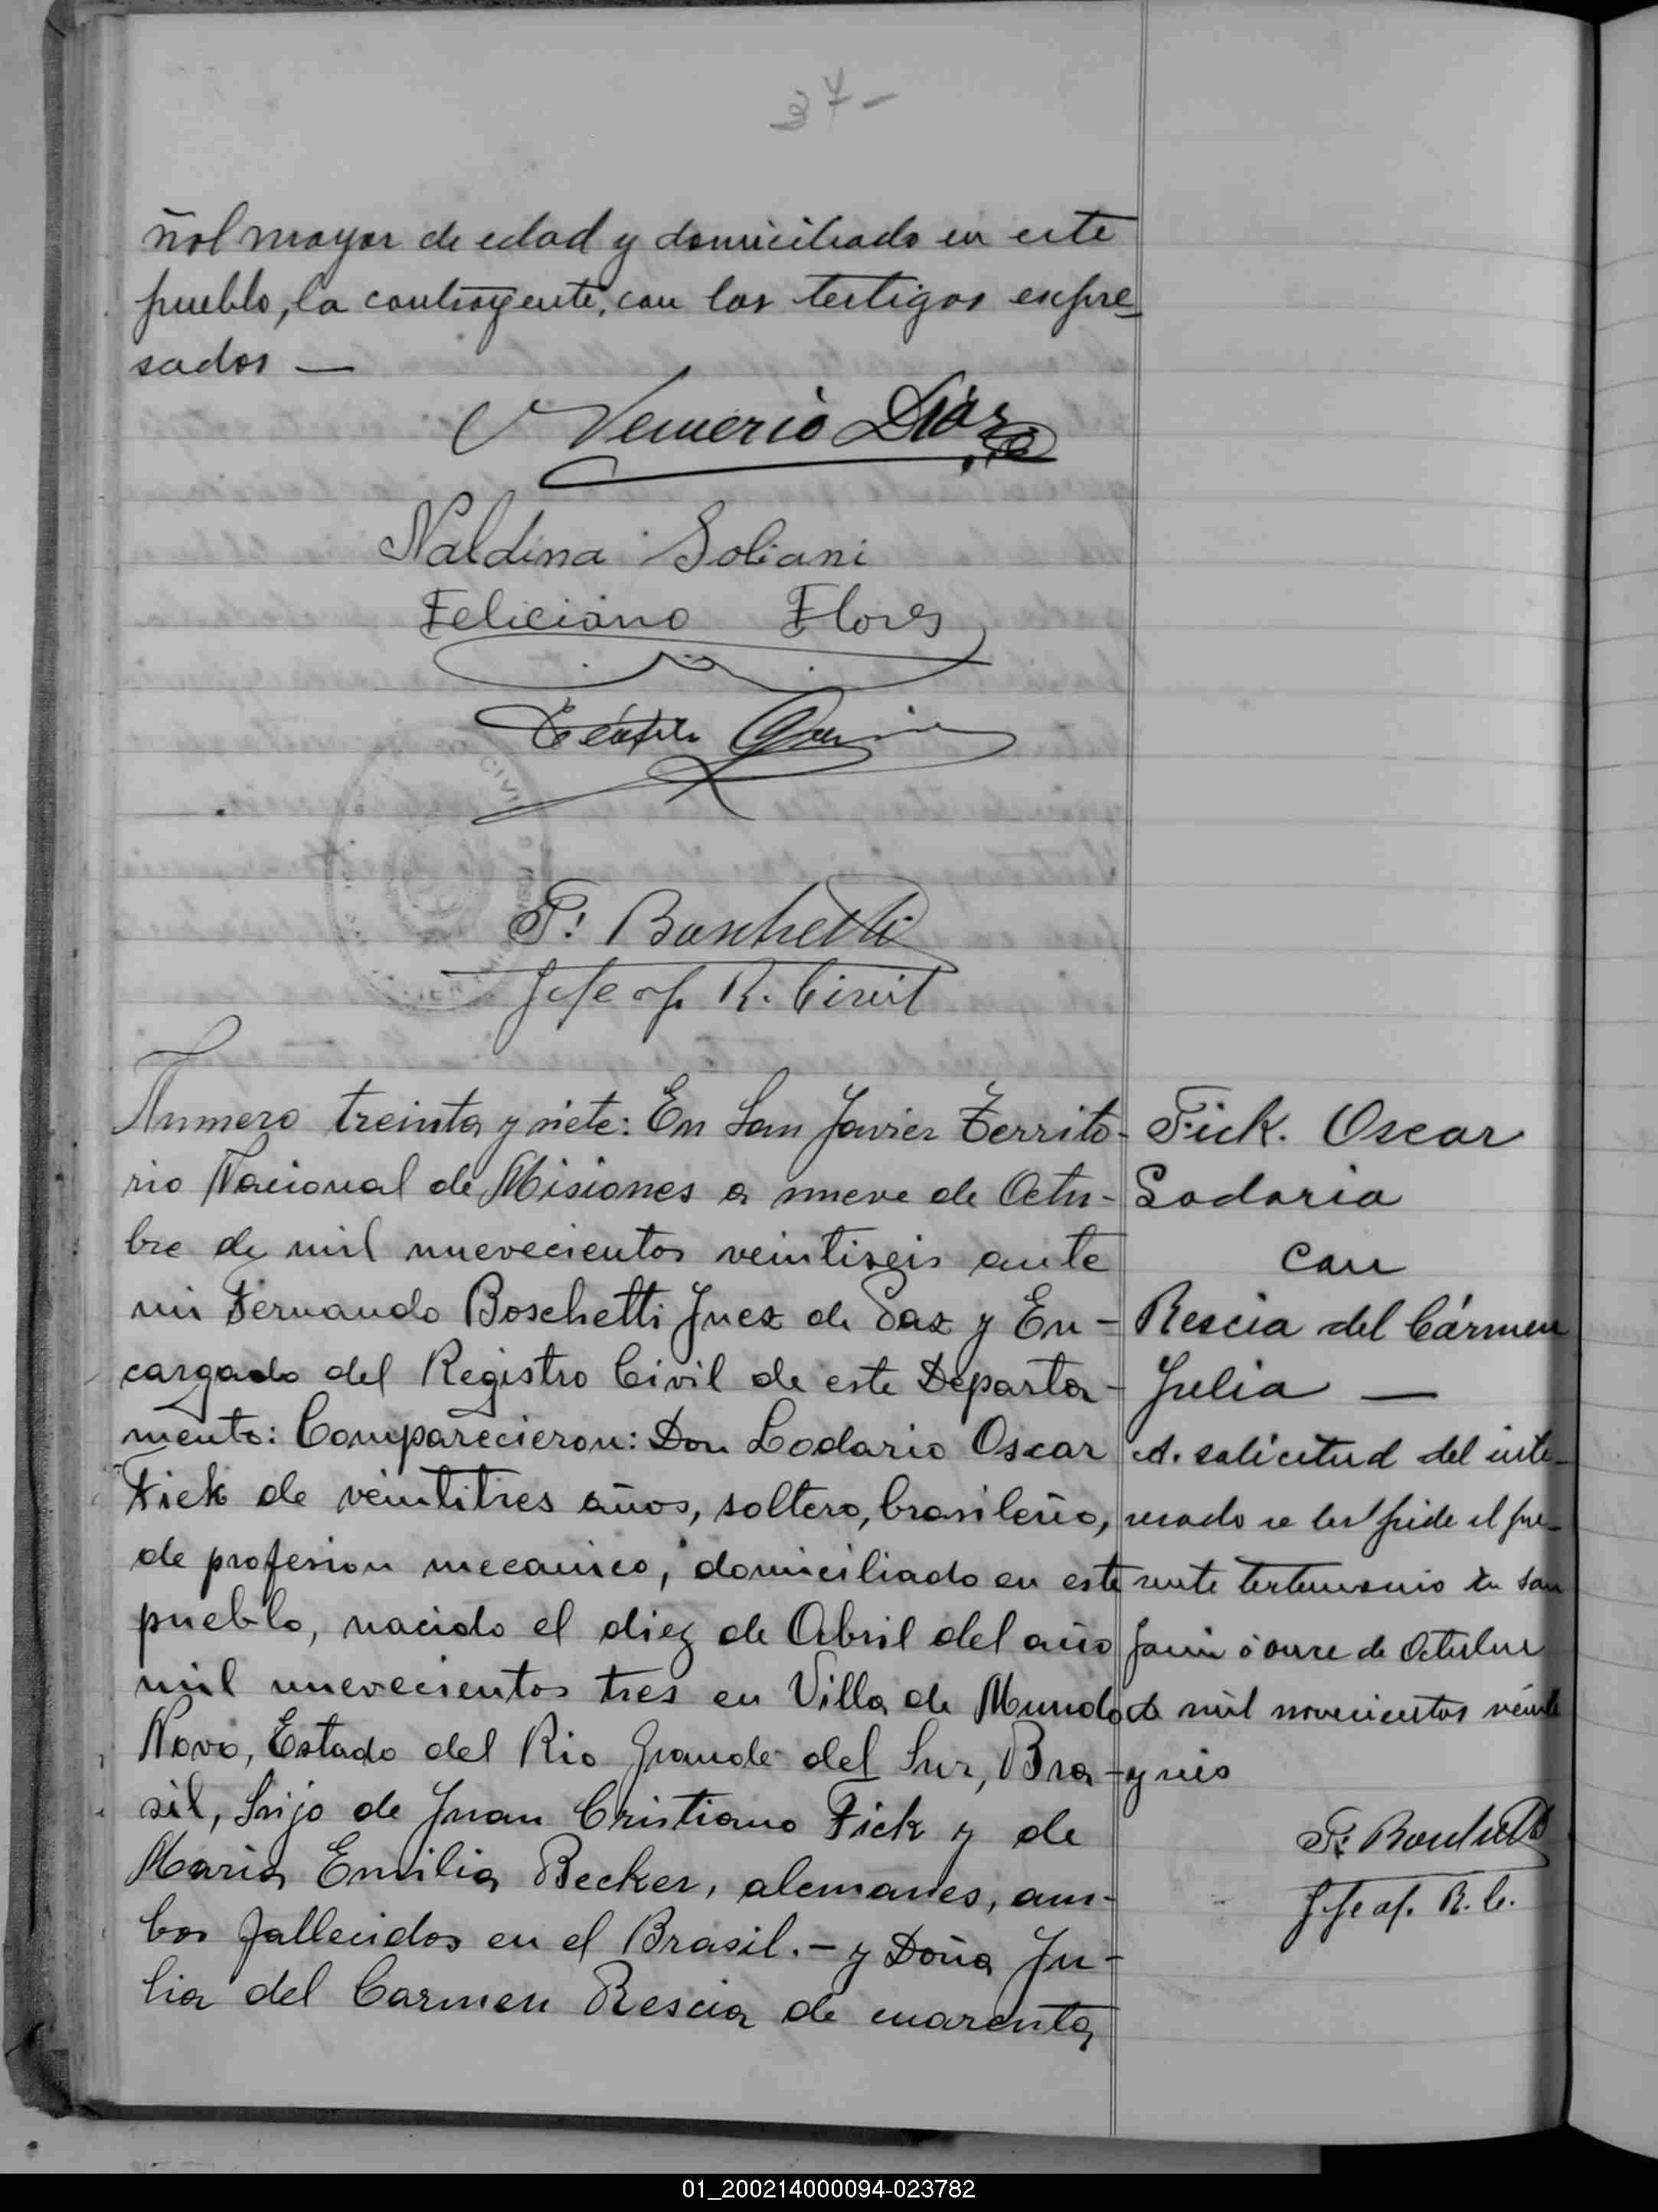 37-
ñol mayor de edad y domiciliado en este
pueblo, la contrayente, con los testigos expre
sados —
Nemerio Diaz
Naldina Soliani
Feliciano Flores
P. Boschetti
Jefe of. R. Civil
Numero treinta y siete: En San Javier Territo-
rio Nacional de Misiones a nueve de Octu-
bre de mil nuevecientos veintiseis ante
mi Fernando Boschetti Juez de Paz y En-
cargado del Registro Civil de este Departa-
mento: Comparecieron: Don Lodario Oscar
Fick de veintitres años, soltero, brasileño,
de profesion mecanico, domiciliado en este
pueblo, nacido el diez de Abril del año
mil nuevecientos tres en Villa de Mundo
Novo, Estado del Rio Grande del Sur, Bra-
sil, hijo de Juan Cristiano Fick y de
Maria Emilia Becker, alemanes, am-
bos fallecidos en el Brasil.- y Doña Ju-
lia del Carmen Rescia de cuarenta
Fick. Oscar
Lodario
con
Rescia del Cármen
Julia —
A. solicitud del inte-
resado se le expide el pre-
sente testimonio en San
Javier a once de Octubre
de mil novecientos veinte
y seis
F. Boschetti
Jefe of. R. C.
01_200214000094-023782